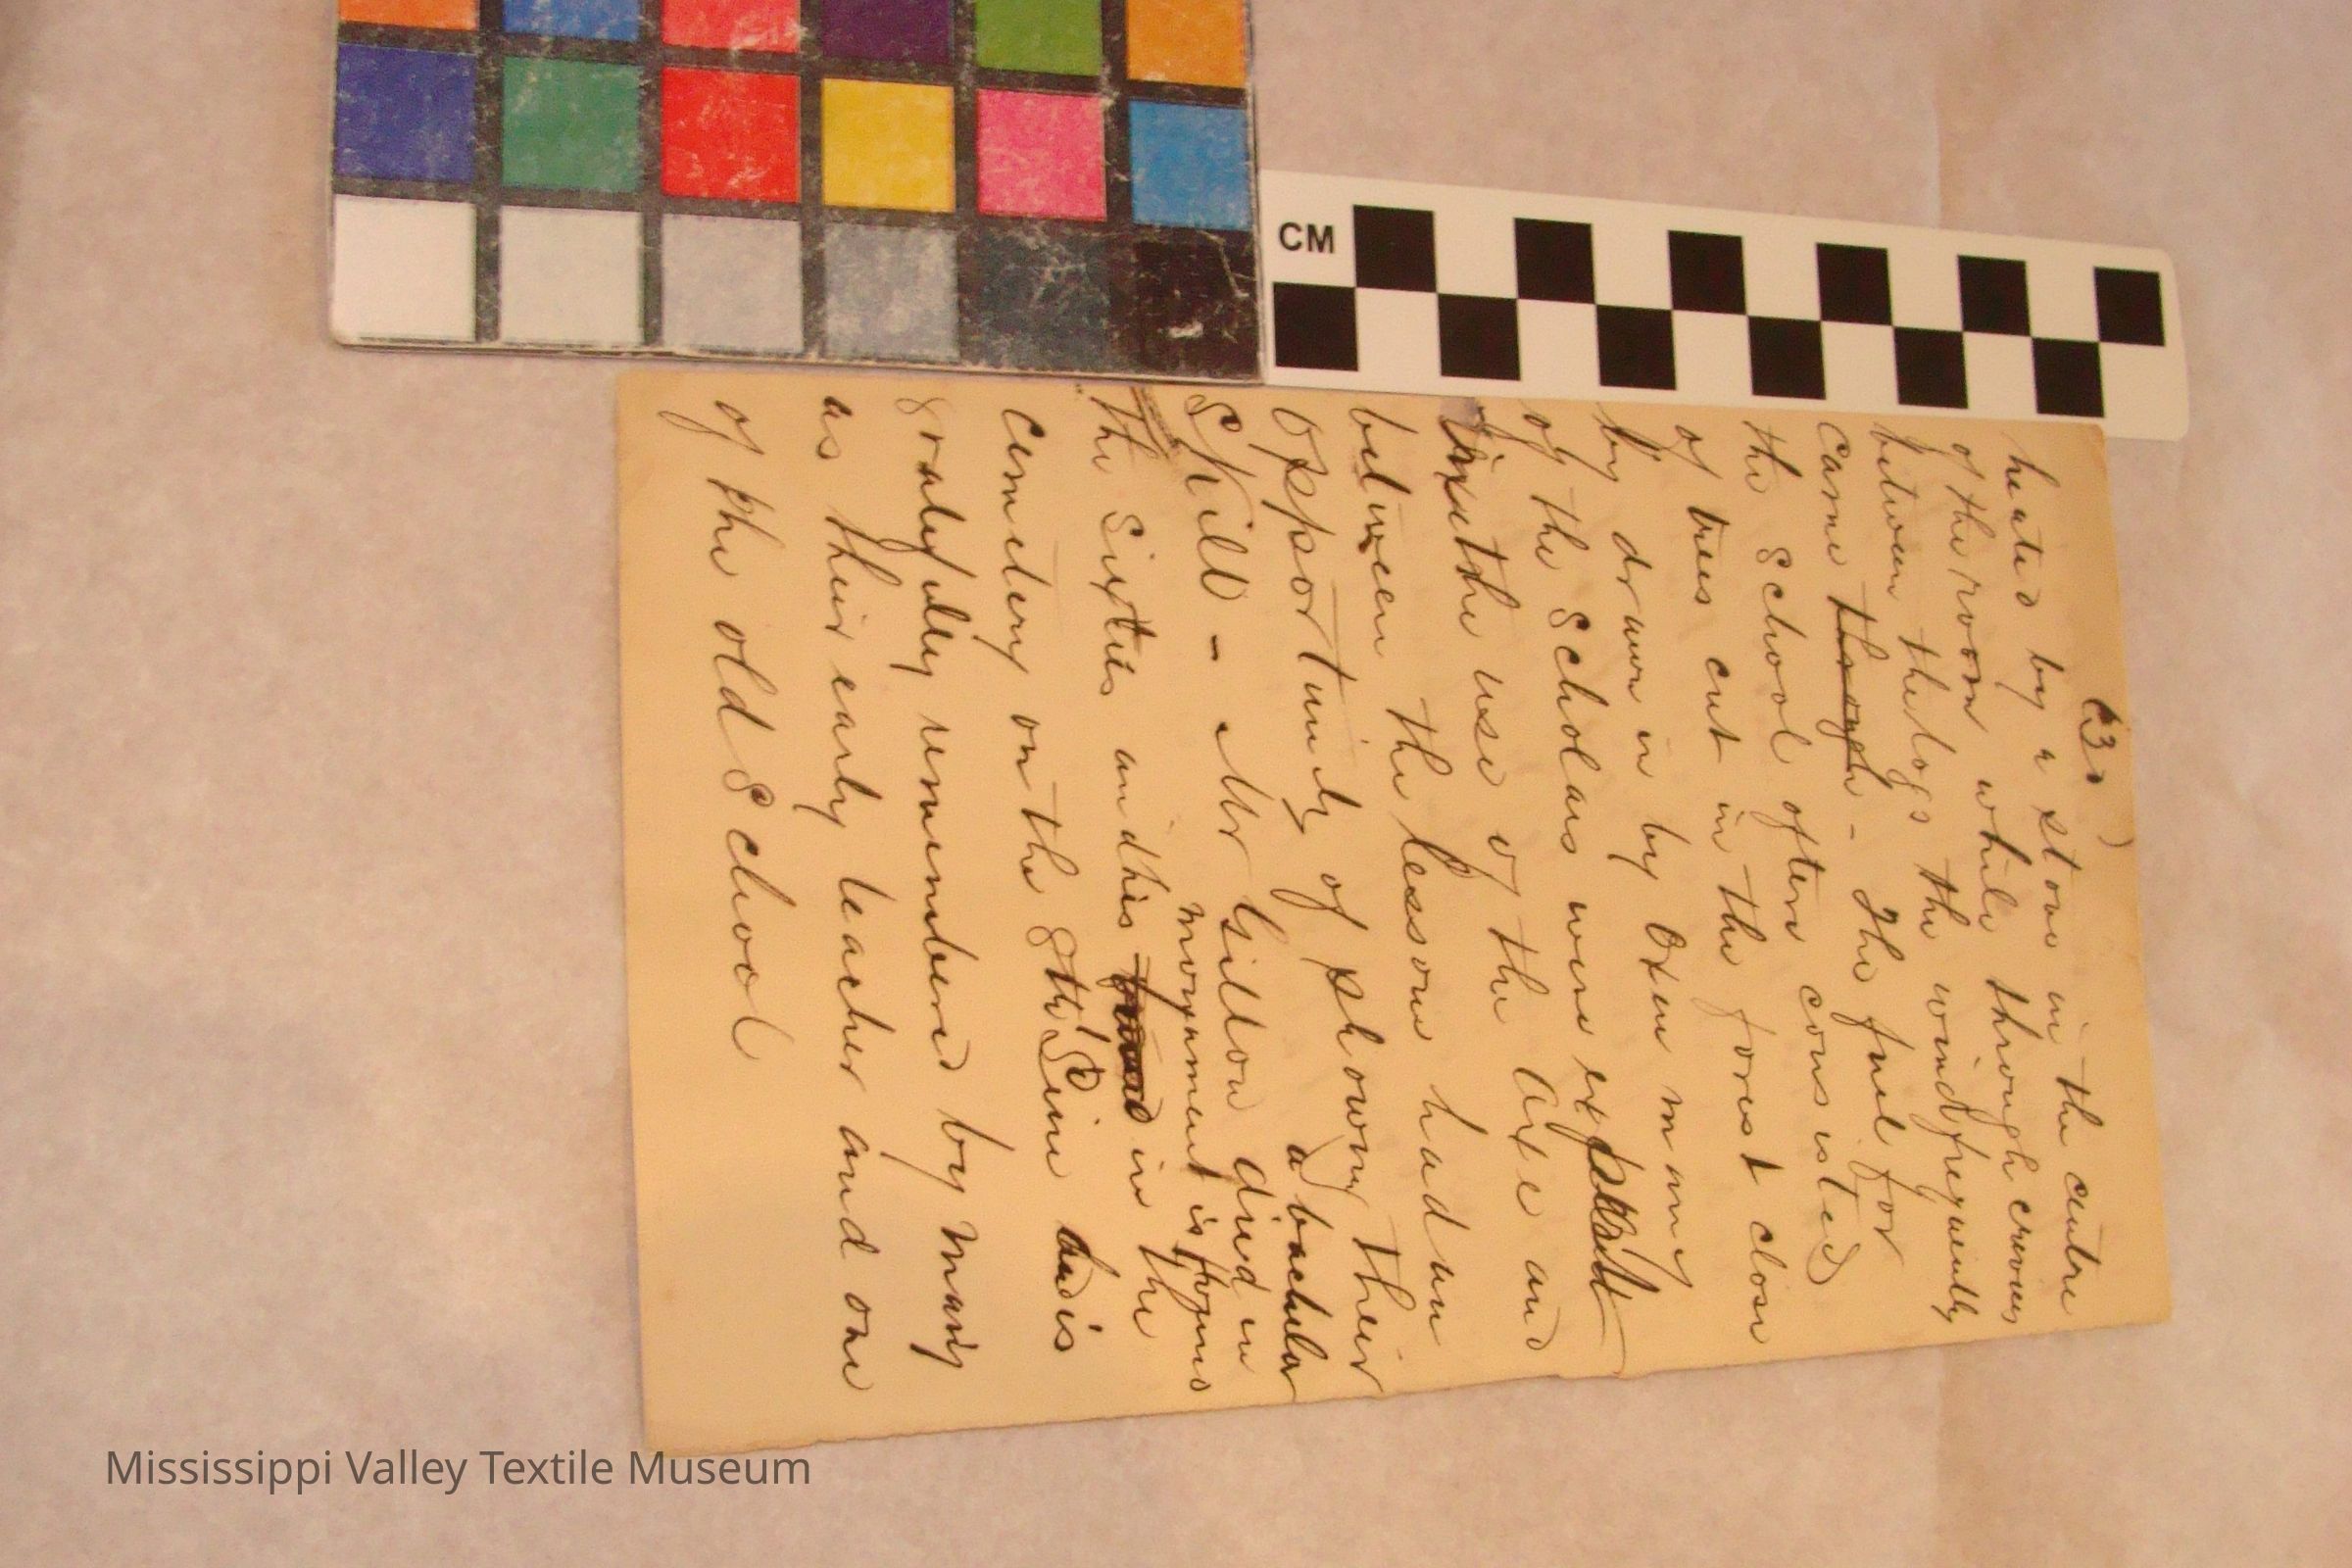 CM
(3)
heated by a stove in the centre
of the room while through crevices
between the logs the wind frequently
came through - The fuel for
the School often consisted
of trees cut in the forest close
by drawn in by Oxen many
of the Scholars were expert
in the use of the Axe and
between the lessons had an
opportunity of showing their
Skill - Mr Gillon died in a bachelor
the Sixties and his monument is found in the
cemetery on the 8th Line and is
gratefully remembered by many
as their early teacher and one
of the old School
Mississippi Valley Textile Museum